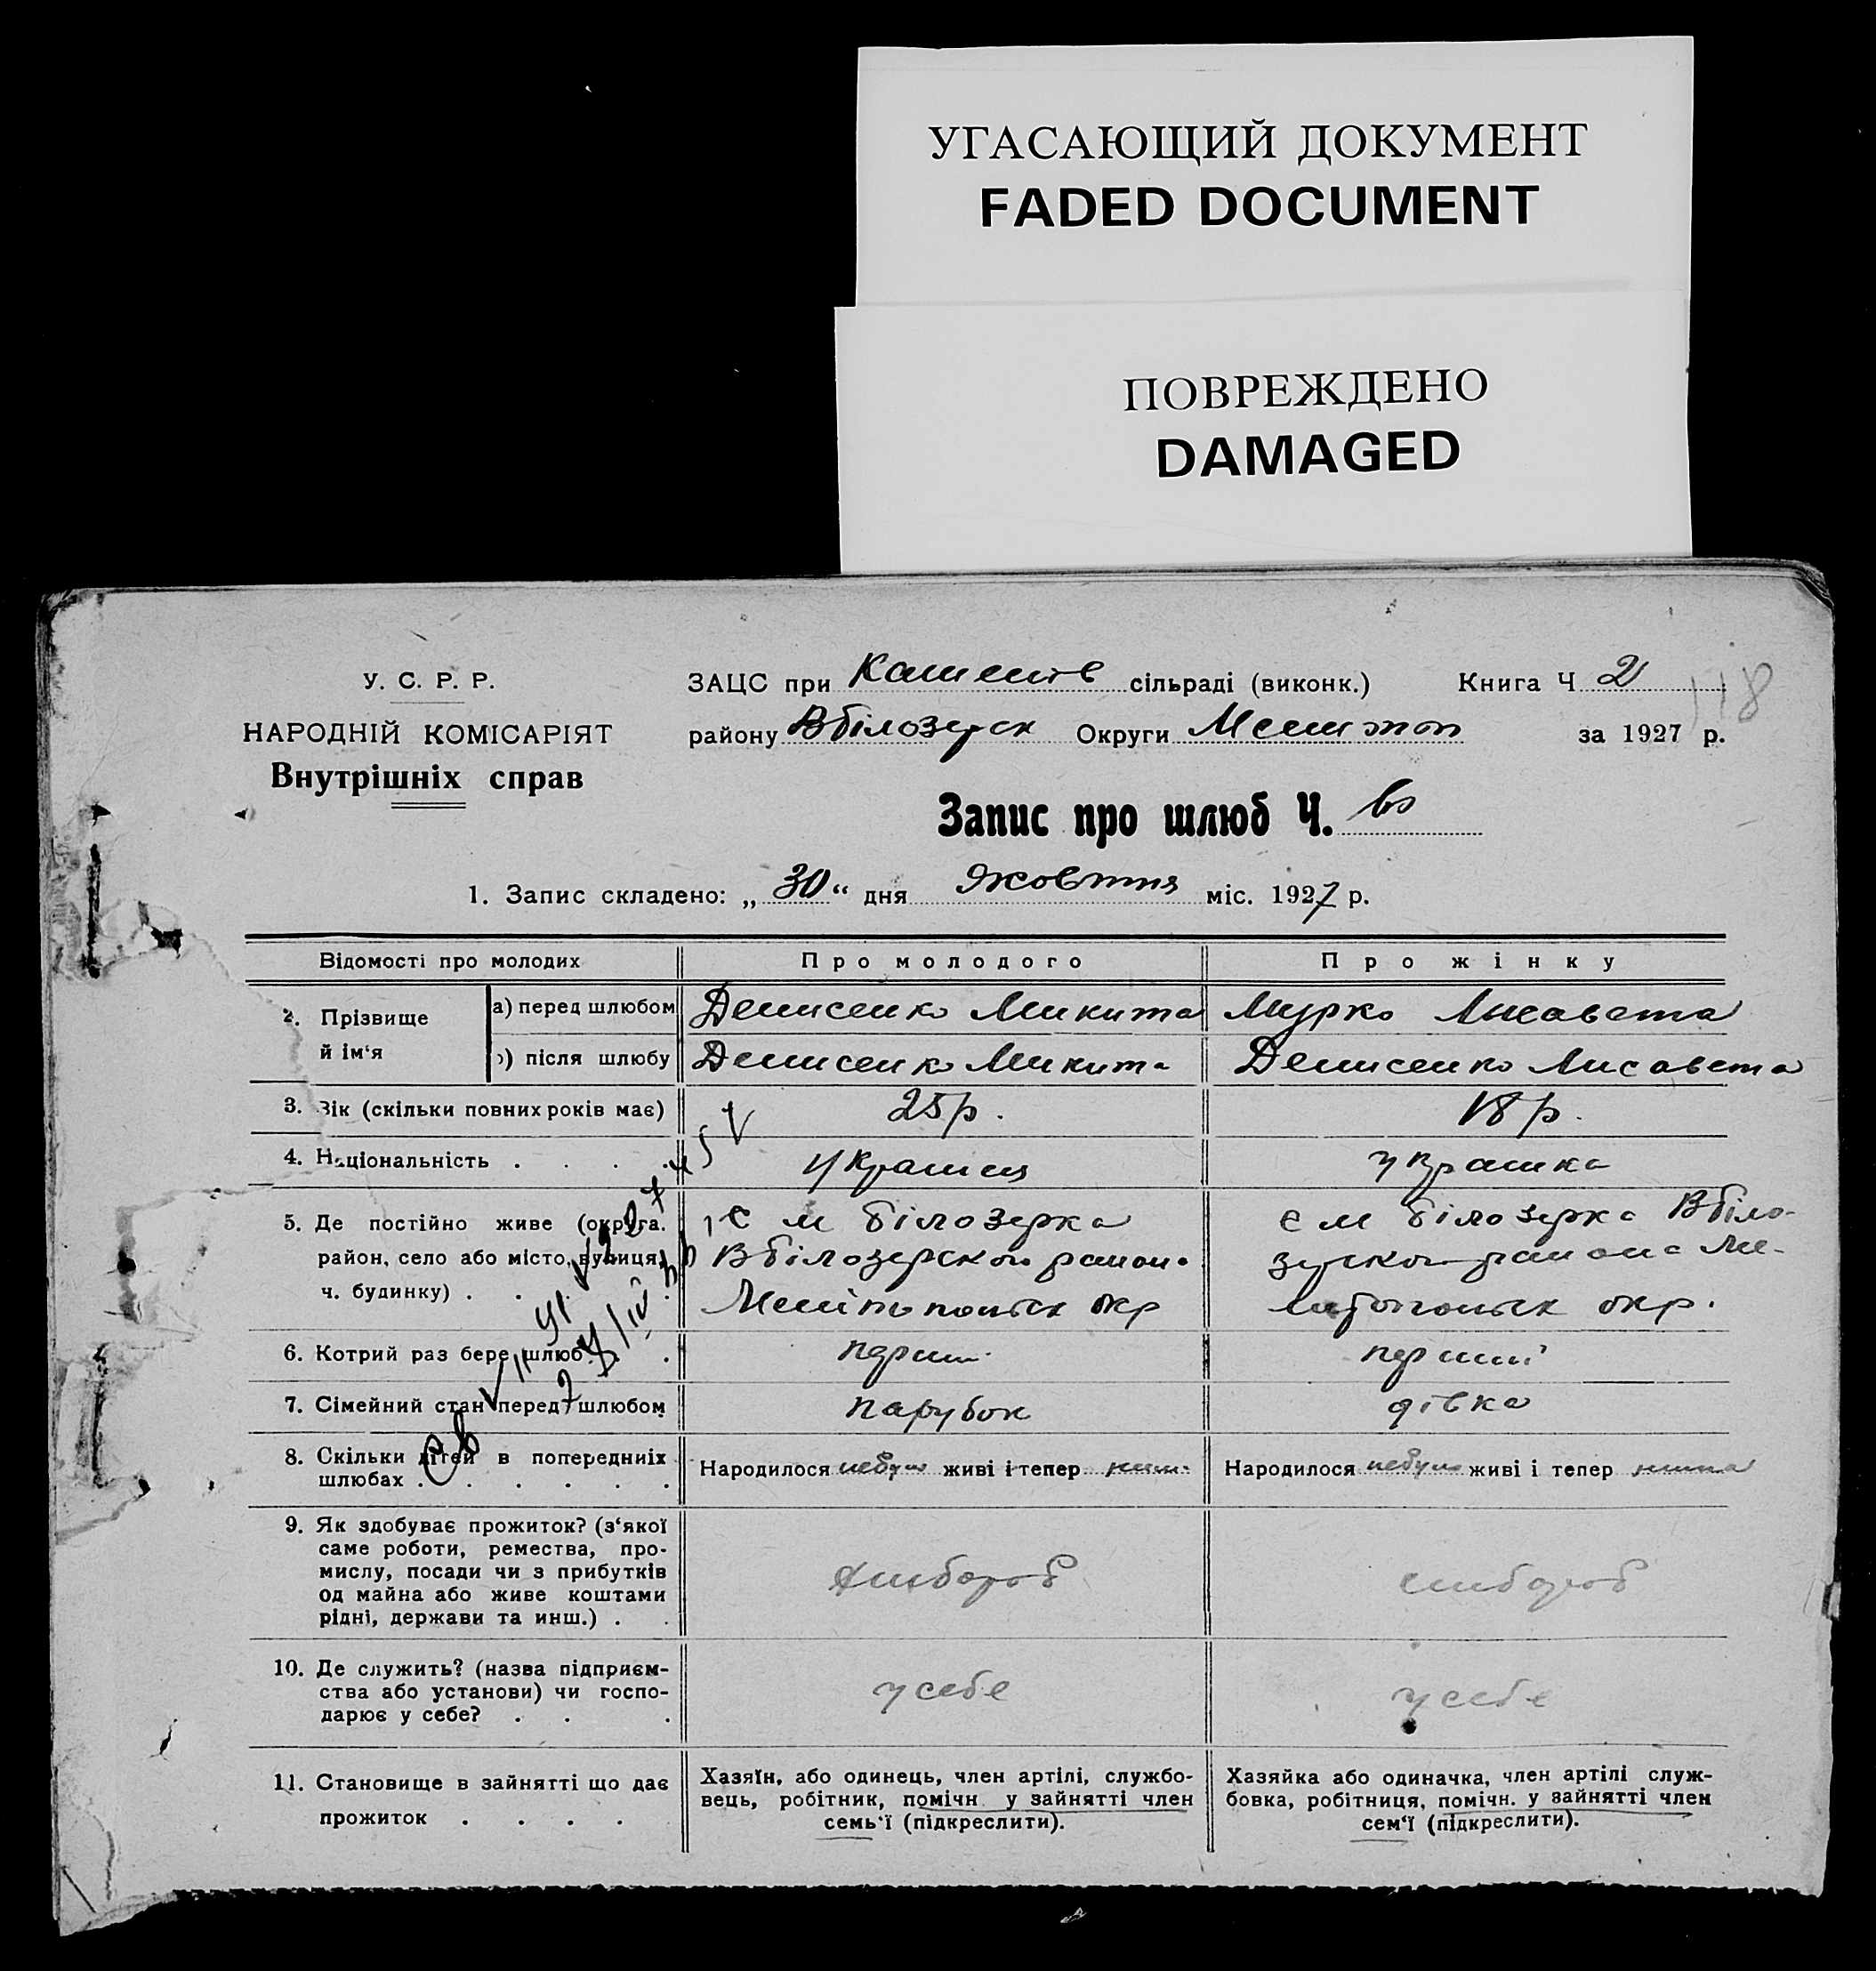 УГАСАЮЩИЙ ДОКУМЕНТ
FADED DOCUMENT
ПОВРЕЖДЕНО
DAMAGED
У. С. Р. Р.
НАРОДНІЙ КОМІСАРІЯТ
Внутрішніх справ
ЗАЦС при сільраді (виконк.) Книга Ч 2
118
району Вбілозерск Округи за 1927 р.
Запис про шлюб Ч.
1. Запис складено: „30“ дня Жовтня міс. 1927 р.
Відомості про молодих
Про молодого
Про жінку
2. Прізвище й ім‘я
а) перед шлюбом
Денисенко Микита
Мурко Лисавета
) після шлюбу
Денисенко Микита
Денисенко Лисавета
3. Вік (скільки повних років має)
25 р.
18 р.
4. Національність . . . .
Украинец
украинка
5. Де постійно живе (округа, район, село або місто, вулиця, ч. будинку) . . . .
с м білозерка
Вбілозерского район
Меліпопольск окр
с м білозерка Вбіло-
зерского района Ме-
окр.
6. Котрий раз бере шлюб . . .
перши
перший
7. Сімейний стан перед шлюбом
парубок
дівка
8. Скільки дітей в попередниіх шлюбах . . . . . .
Народилося небуло живі і тепер
Народилося небуло живі і тепер нима
9. Як здобуває прожиток? (з‘якої
саме роботи, ремества, про-
мислу, посади чи з прибутків
од майна або живе коштами
рідні, держави та инш.) . .
хлибороб
хлибороб
10. Де служить? (назва підприєм-
ства або установи) чи госпо-
дарює у себе? . . .
у себе
у себе
11. Становище в зайнятті що дає
прожиток . . . .
Хазяїн, або одинець, член артілі, службо-
вець, робітник, помічн. у зайнятті член
семь‘ї (підкреслити).
Хазяйка або одиначка, член артілі служ-
бовка, робітниця, помічн. у зайнятті член
сем‘ї (підкреслити).